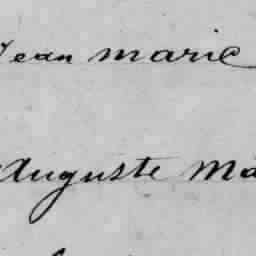 Jean marie
Auguste Ma